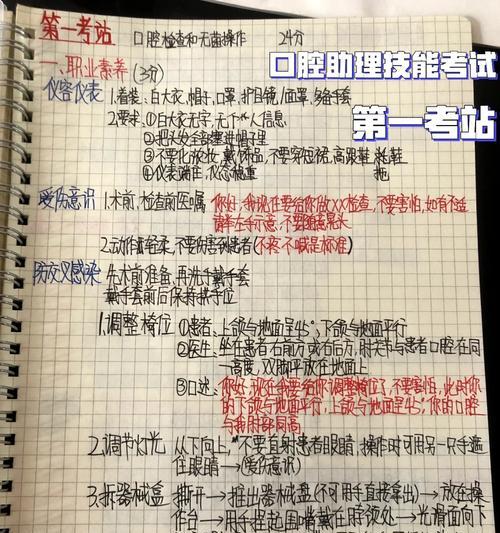 第一考站 口腔检查和无菌操作 24分
口腔助理技能考试
第一考站
一、职业素养(3分)
仪容仪表 1.着装:白大衣,帽子,口罩,护目镜/面罩,多备手套
2.要求:①白大衣无字,无下人信息
②把头发全部塞进帽子里
③不要化浓妆,戴饰品,不要穿短裙,高跟鞋 拖鞋
④仪表端庄,仪态稳重
爱伤意识 1.术前,检查前医嘱 你好,我现在要给你做XX检查,不要害怕,如有不适
请举左手示意,不要随意晃头
2.动作要轻柔,不要伤害到患者(不疼不喊是标准)
防交叉感染 先术前准备,再洗手戴手套
戴手套前后保持拱手位
1.调整椅位 ①患者:上颌与地面呈45°,下颌与地面平行
②医生:坐在患者右前方或右后方,肘关节与患者口腔在同
一高度,双脚平放在地面上
③口述:你好,现在我要给你调整椅位了,不要害怕,此时你
的下颌与地面平行,上颌与地面呈45°你的口腔
与我肘部同高
2.调节灯光 从下向上,"不要直射患者眼睛,操作时可用另一只手遮
住眼睛→(爱伤意识)
3.拆器械盒 撕开→推出器械盘(不可用手直接拿出)→放在操
作台→用手捏起围嘴戴在脖颈处→光滑面向下